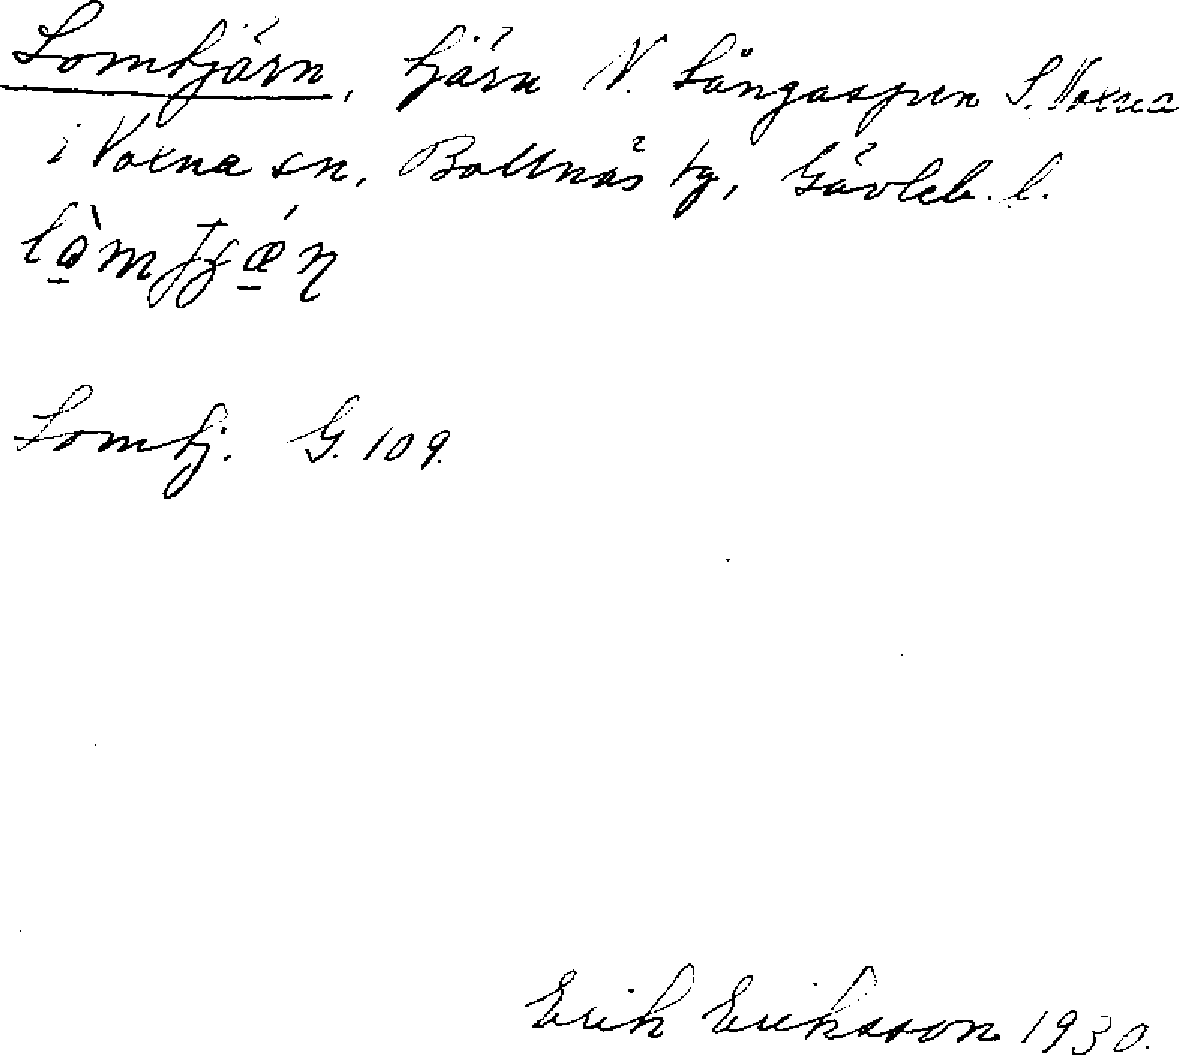 Lomtjärn, tjärn N. Långaspen S. Voxna
i Voxna sn, Bollnäs tg, Gävleb. l.
Lomtj. G. 109.
Erik Eriksson 1930.